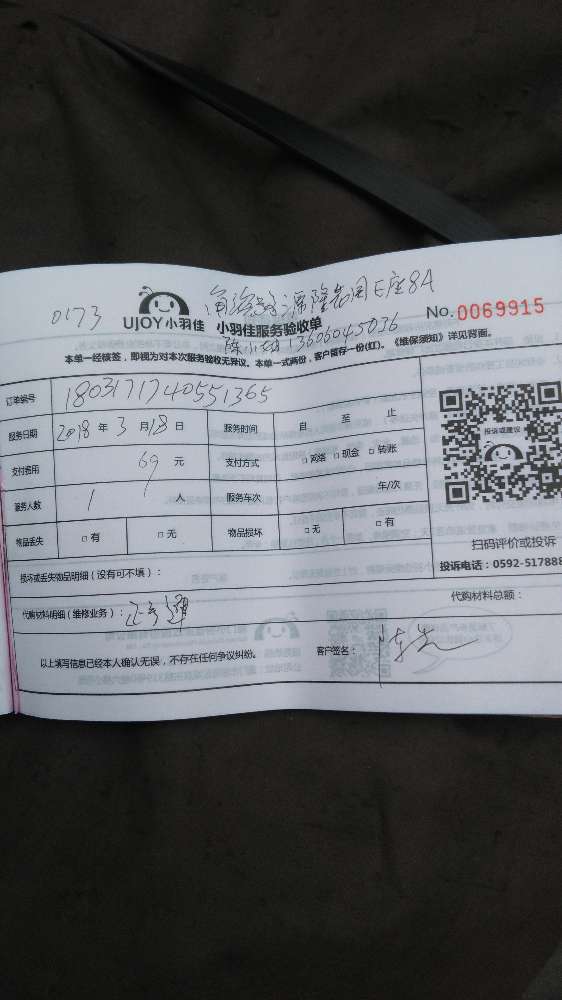 0173
源隆花园E座8A
UJOY小羽佳 小羽佳服务验收单
No.0069915
13606045036
本单一经核签，即视为对本次服务验收无异议。本单一式两份，客户留存一份(红)。《维保须知》详见背面。
订单编号 1803171740551365
服务日期 2018年3月18日 服务时间 自 至 止
支付费用 69元 支付方式 □网络 □现金 □转账
服务人数 1人 服务车次 车/次
物品丢失 □有 □无 物品损坏 □无 □有
投诉或建议
扫码评价或投诉
投诉电话：0592-517888
损坏或丢失物品明细（没有可不填）：
代购材料明细（维修业务）：
代购材料总额：
以上填写信息已经本人确认无误，不存在任何争议纠纷。
客户签名：